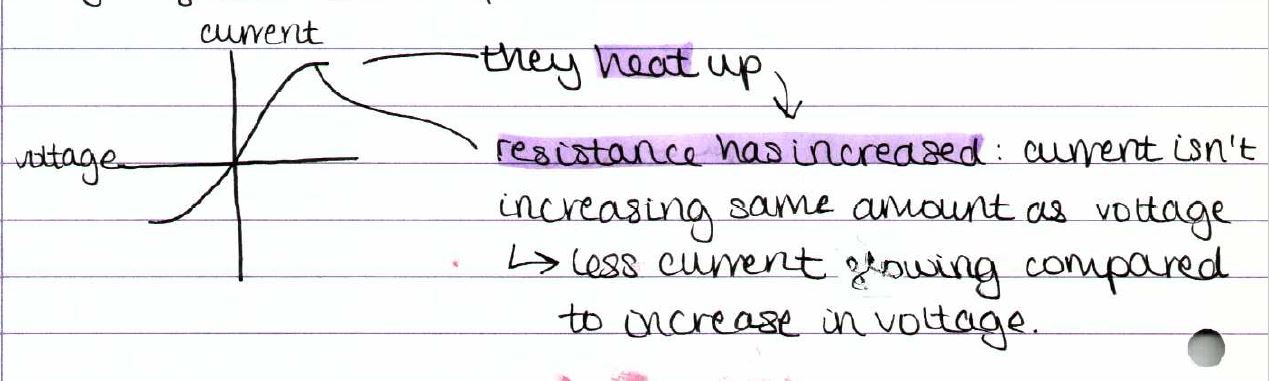 current
they heat up
voltage
resistance has increased: current isn't
increasing same amount as voltage
↳ less current flowing compared
to increase in voltage.